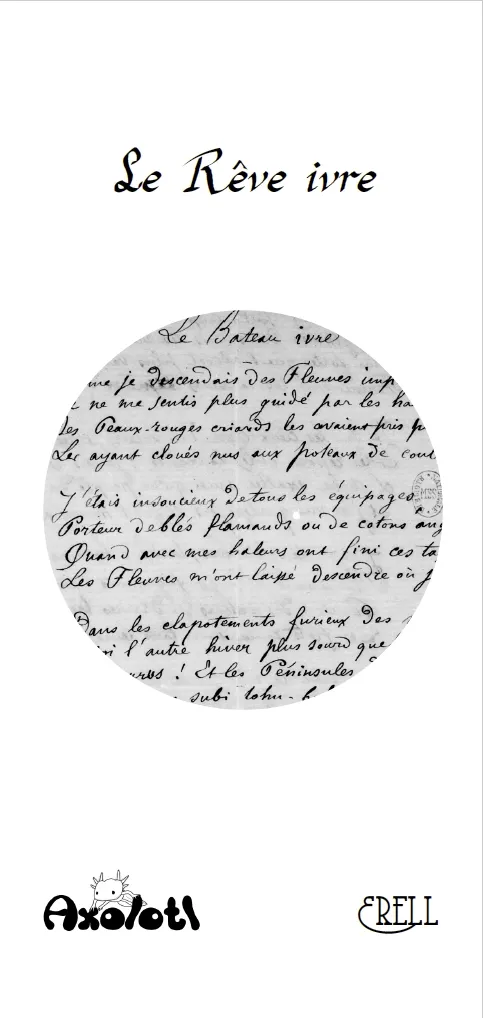 Le Rêve ivre
Le Bateau ivre
me je descendais des Fleuves imp
ne me sentis plus guidé par les ha
des Peaux-rouges criards les avaient pris p
Les ayant cloués nus aux poteaux de coul
J'étais insoucieux de tous les équipages
Porteur de blés flamands ou de cotons ang
Quand avec mes haleurs ont fini ces ta
Les Fleuves m'ont laissé descendre où j
Dans les clapotements furieux des
l'autre hiver plus sourd que
! Et les Péninsules
subi tohu-
Axolotl
ERELL